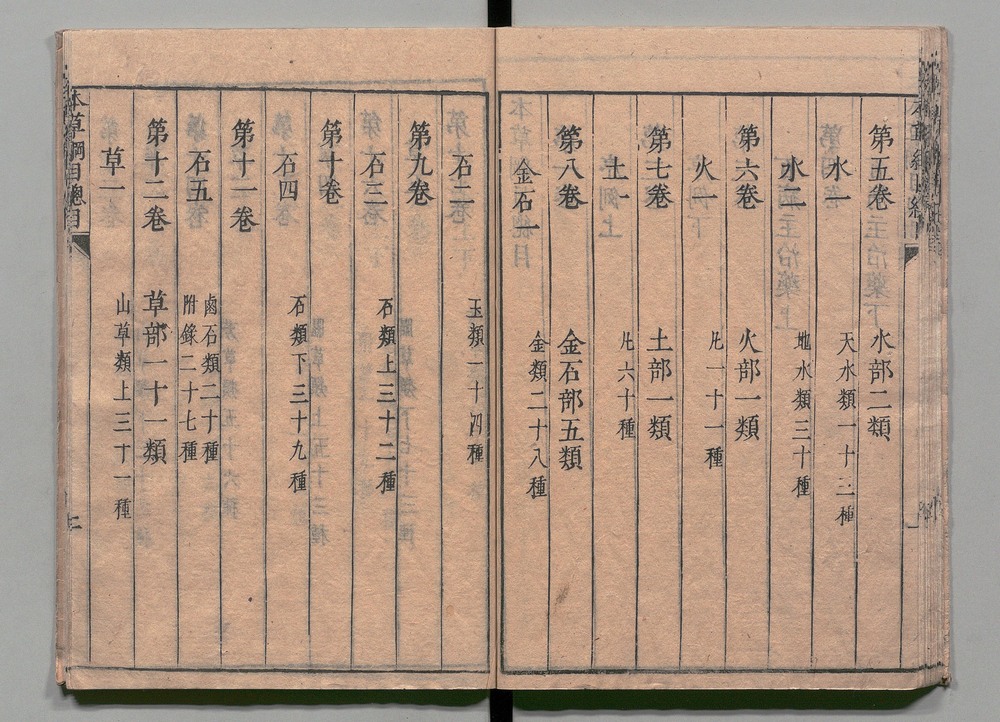 第五卷 水部二類
水一 天水類一十三種
水二 地水類三十種
第六卷 火部一類
火一 凡一十一種
第七卷 土部一類
土一 凡六十種
第八卷 金石部五類
金石一 金類二十八種
石二 玉類一十四種
第九卷
石三 石類上三十二種
第十卷
石四 石類下三十九種
第十一卷
石五 鹵石類二十種
附錄二十七種
第十二卷 草部一十一類
草一 山草類上三十一種
本草綱目總目
二